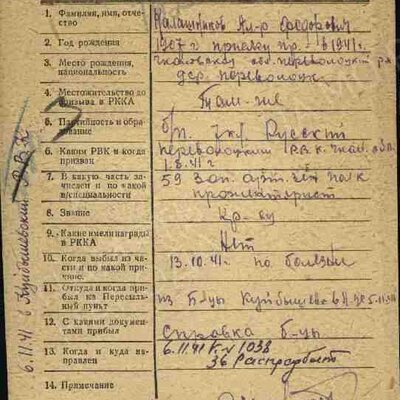 1. Фамилия, имя, отчество
Калашников Ал-р Федорович
2. Год рождения
1907 г призван пр. 1.8 1941 г.
3. Место рождения, национальность
Чкаловская обл. Переволоцкий р-н
дер. Переволоцк
4. Местожительство до призыва в РККА
Там-же
5. Партийность и образование
б/п. 1 кл Русский
6. Каким РВК и когда призван
Переволоцким РВК. Чкал. обл.
1.8.41 г
7. В какую часть зачислен и по какой в/специальности
59 зап. арт. полк
8. Звание
Кр-ц
9. Какие имели награды в РККА
Нет
10. Когда выбыл из части и по какой причине.
13.10.41. по болезни
11. Откуда и когда прибыл на Пересыльный пункт
из Б-цы Куйбышева 5.11.41
12. С какими документами прибыл
Справка б-цы
13. Когда и куда направлен
6.11.41 К-л 1038
36
14. Примечание
6.11.41 в Куйбышевский РВК